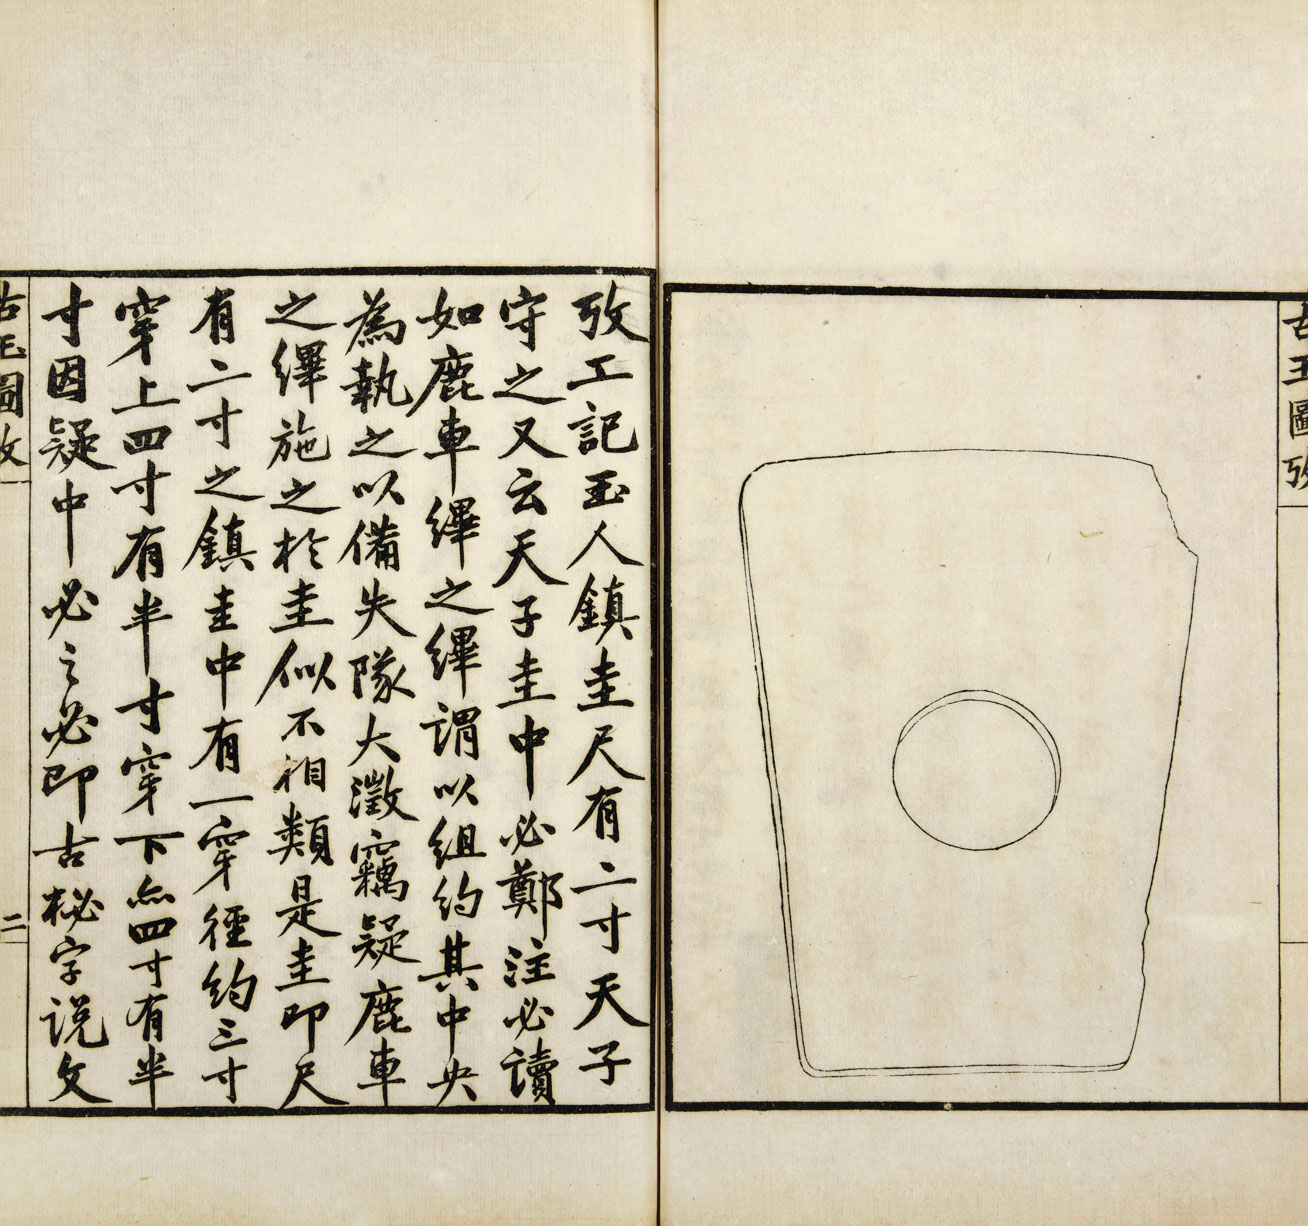 古玉圖攷
攷工記玉人鎮圭尺有二寸天子
守之又云天子圭中必鄭注必讀
如鹿車縪之縪謂以組約其中央
為執之以備失隊大澂竊疑鹿車
之縪施之於圭似不相類是圭即尺
有二寸之鎮圭中有一穿徑約三寸
穿上四寸有半寸穿下亦四寸有半
寸因疑中必之必即古柲字説文
古玉圖攷
二